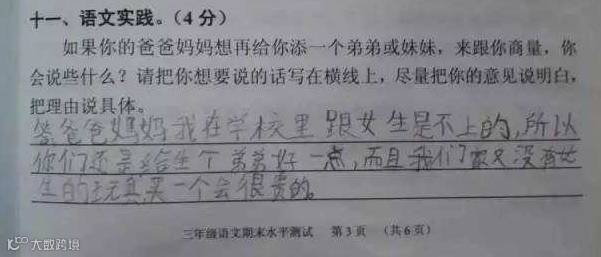 十一、语文实践。(4分)
如果你的爸爸妈妈想再给你添一个弟弟或妹妹，来跟你商量，你
会说些什么？请把你想要说的话写在横线上，尽量把你的意见说明白，
把理由说具体。
答爸爸妈妈我在学校里跟女生是不上的，所以
你们还是给生个弟弟好一点，而且我们家又没有女
生的玩具买一个会很贵的。
三年级语文期末水平测试 第3页 （共6页）
大数跨境